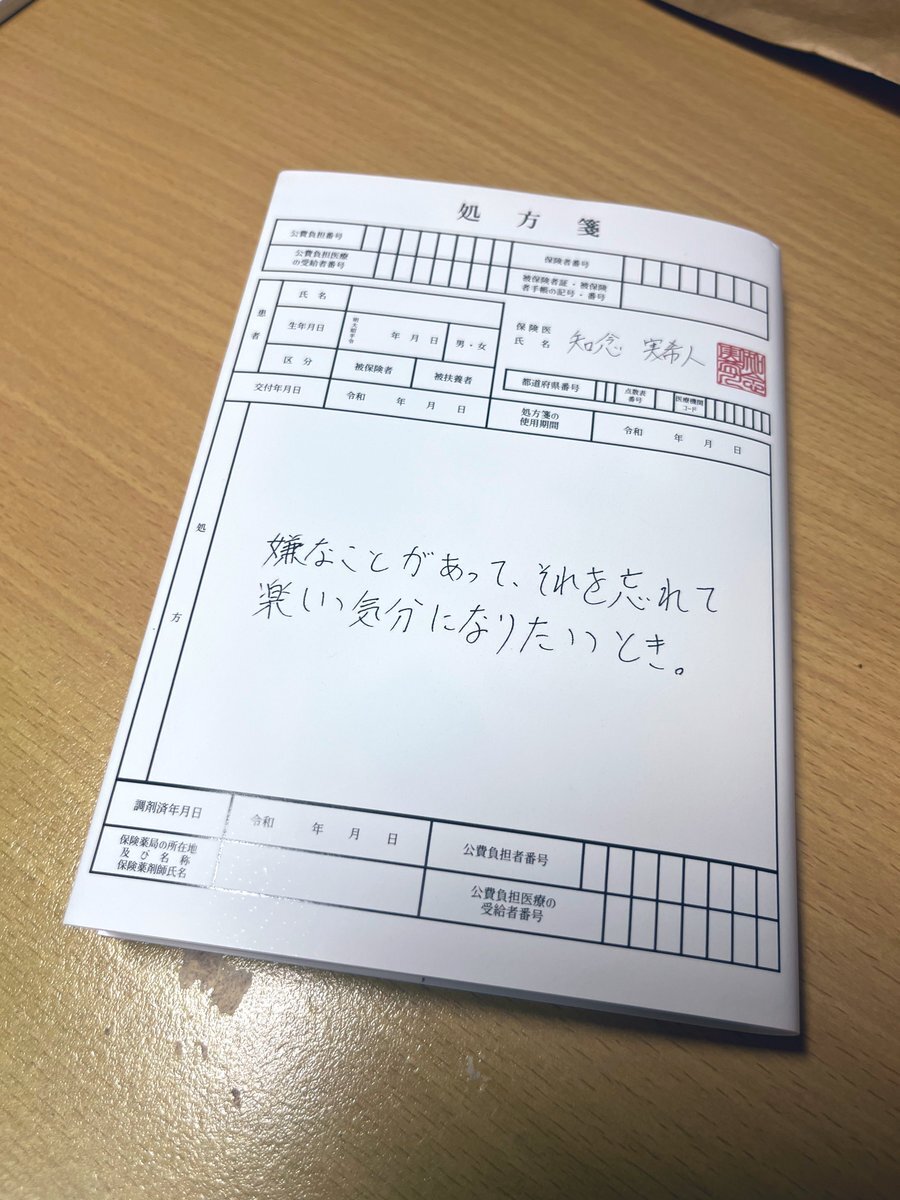 処方箋
公費負担番号
保険者番号
公費負担医療
の受給者番号
被保険者証・被保険
者手帳の記号・番号
患者
氏名
生年月日
明大昭平令
年 月 日
男・女
区分
被保険者
被扶養者
保険医
氏名
知念 実希人
都道府県番号
点数表
番号
医療機関
コード
交付年月日
令和 年 月 日
処方箋の
使用期間
令和 年 月 日
処方
嫌なことがあって、それを忘れて
楽しい気分になりたいとき。
調剤済年月日
令和 年 月 日
公費負担者番号
保険薬局の所在地
及び名称
保険薬剤師氏名
公費負担医療の
受給者番号